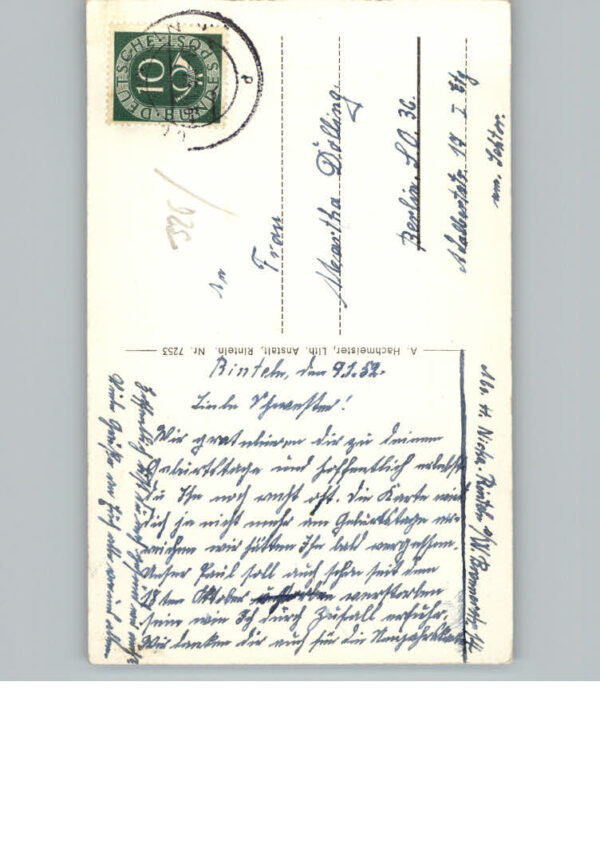 DEUTSCHE BUNDESPOST
10
1325
An
Frau
Martha Dölling
Berlin S.O. 36.
Adalbertstr. 17 I Etg
A. Hachmeister, Lith. Anstalt, Rinteln, Nr. 7253
Rinteln, den 9.1.52.
Liebe Schwester!
Wir gratulieren dir zu deinem
Geburtstage und hoffentlich erlebst
du Ihn noch recht oft. die Karte wird
dich ja nicht mehr am Geburtstage er-
reichen wir hätten Ihn bald vergessen.
Unser Paul soll auch schon seit dem
18ten Oktober verstorben
sein wie Ich durch Zufall erfuhr.
Wir danken dir auch für die Neujahrskarte
Hoffentlich
Viele Grüße
Abs. H. Rinteln a/W.